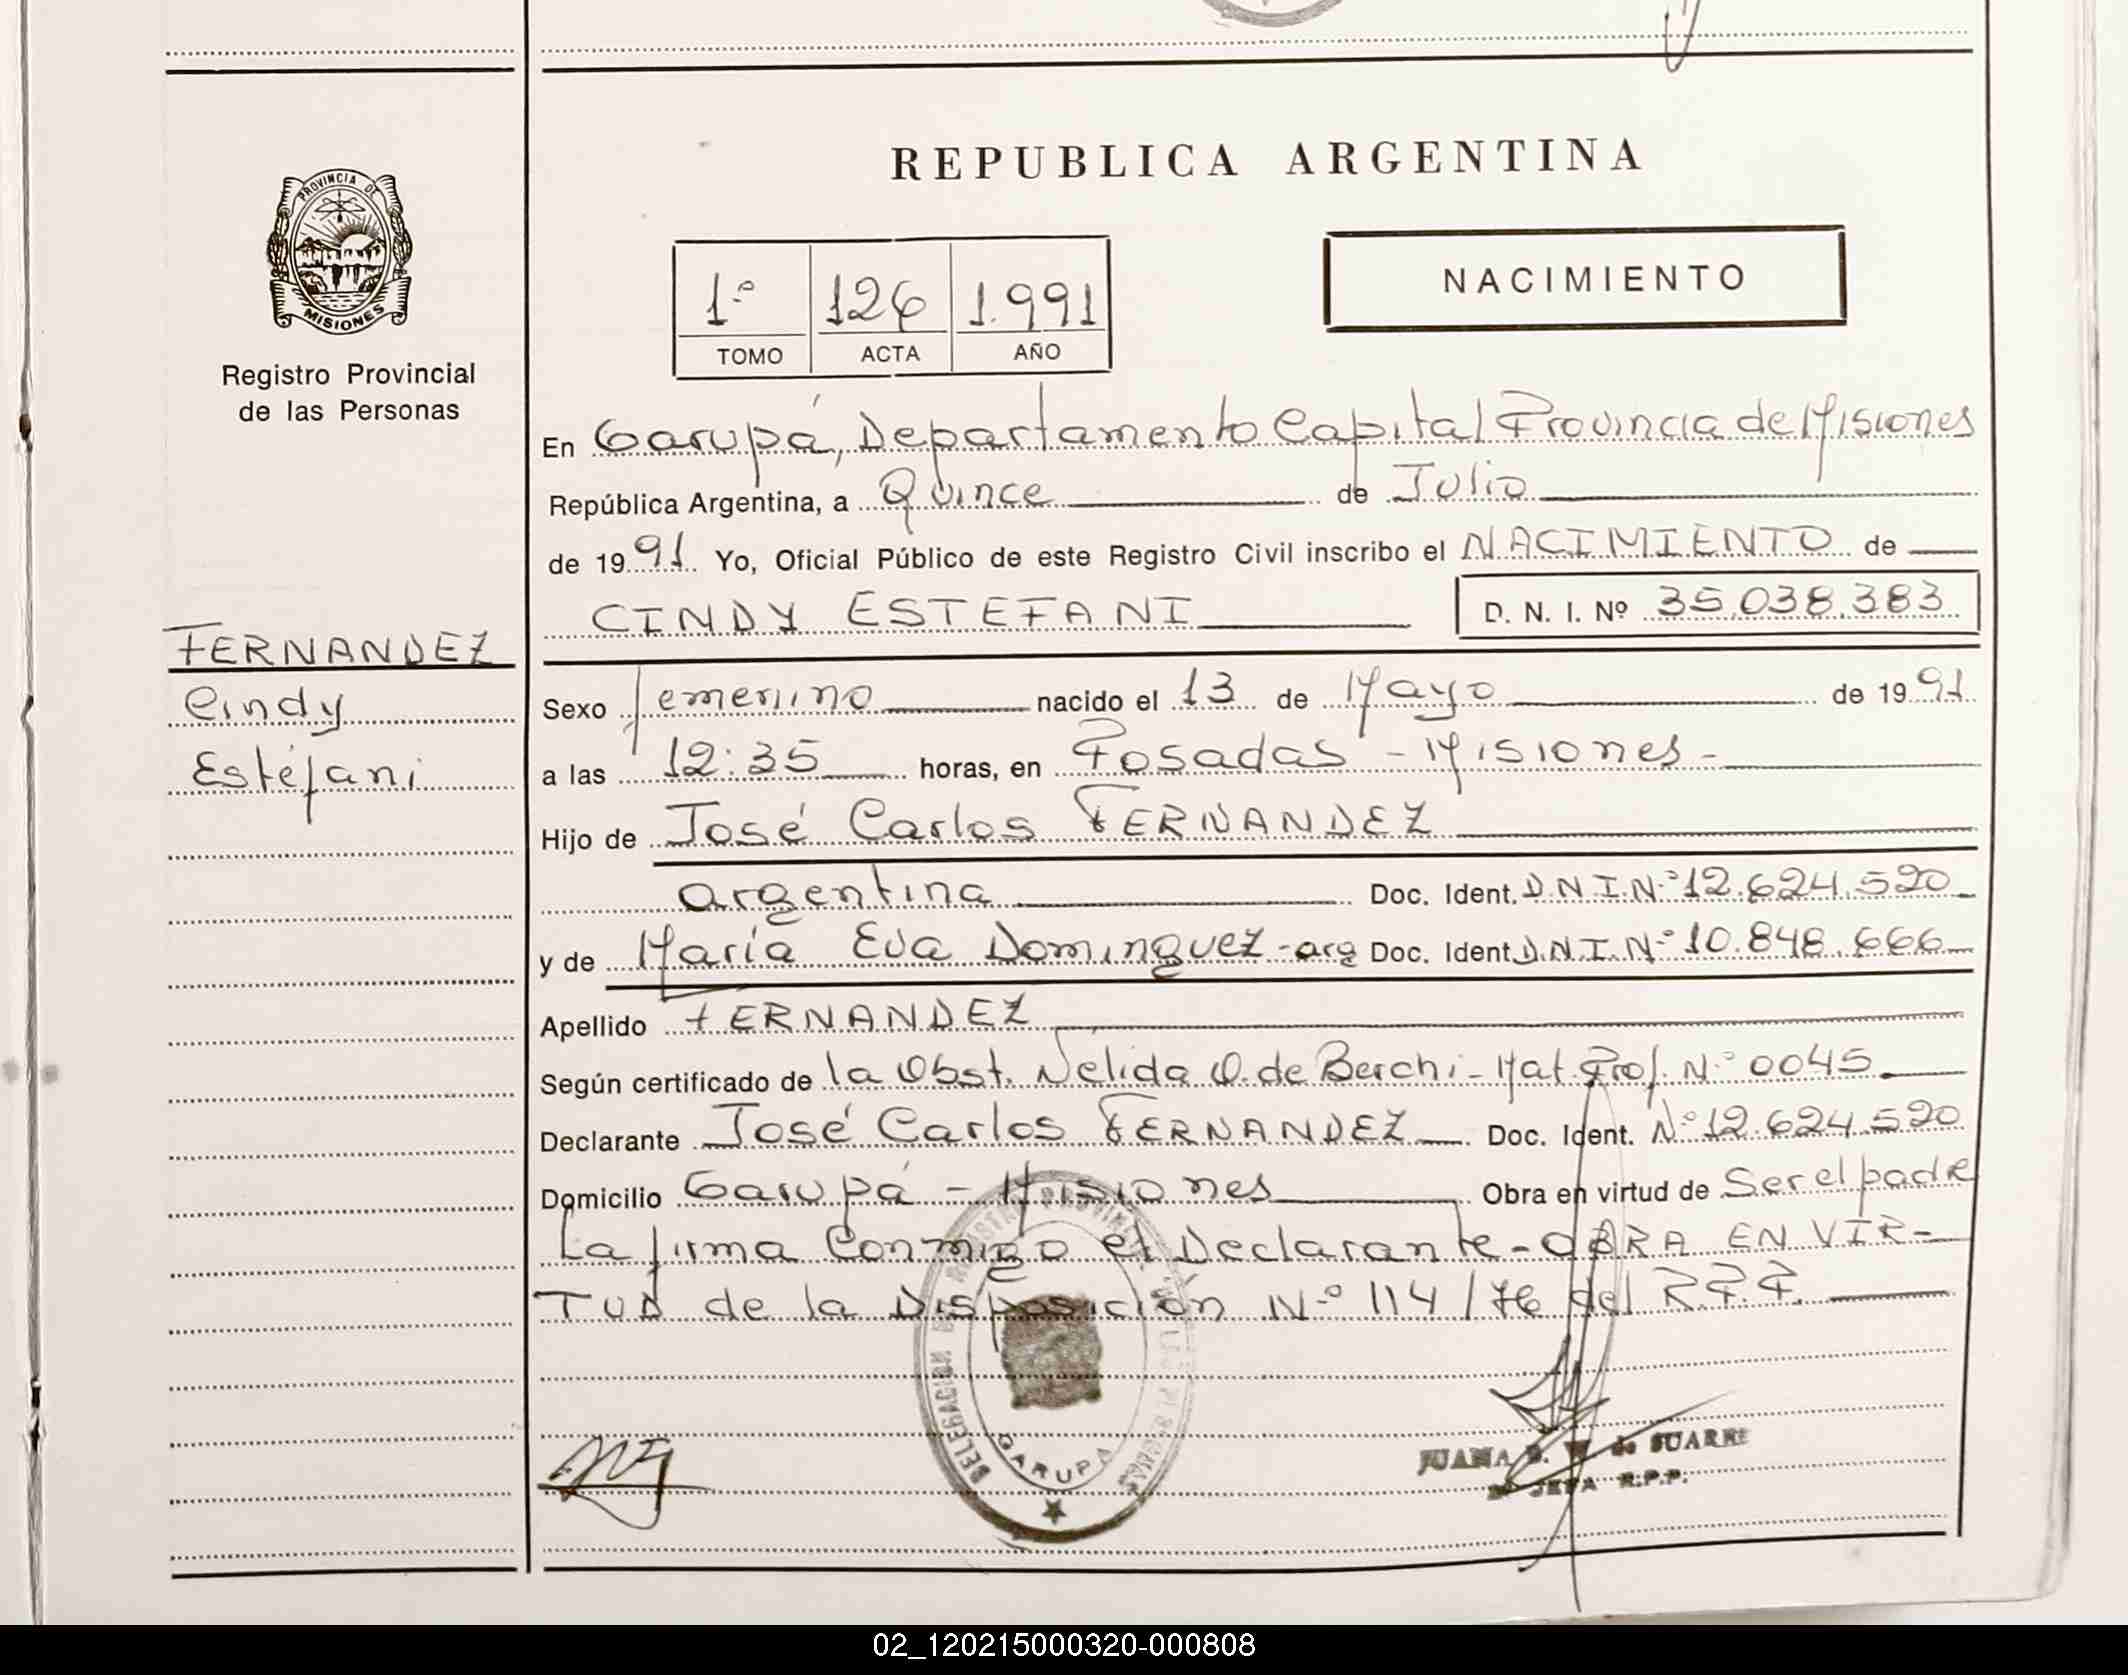 REPUBLICA ARGENTINA
PROVINCIA DE
MISIONES
Registro Provincial
de las Personas
NACIMIENTO
1º 126 1.991
TOMO ACTA AÑO
En Garupá, Departamento Capital Provincia de Misiones
República Argentina, a Quince de Julio
de 1991 Yo, Oficial Público de este Registro Civil inscribo el NACIMIENTO de
CINDY ESTEFANI D. N. I. Nº 35.038.383
FERNANDEZ
Cindy
Estéfani
Sexo femenino nacido el 13 de Mayo de 1991
a las 12:35 horas, en Posadas - Misiones -
Hijo de José Carlos FERNANDEZ
argentina Doc. Ident. D.N.I.Nº 12.624.520
y de María Eva Dominguez - arg Doc. Ident. D.N.I.Nº 10.848.666
Apellido FERNANDEZ
Según certificado de la Obst. Nelida O. de Berchi - Mat. Prof. Nº 0045
Declarante José Carlos FERNANDEZ Doc. Ident. Nº 12.624.520
Domicilio Garupá - Misiones Obra en virtud de Ser el padre
La firma Conmigo el Declarante - OBRA EN VIR-
TUD de la Disposición Nº 114/76 del R.P.P.
DELEGACION
GARUPA
JUANA de SUARRE
JEFA R.P.P.
02_120215000320-000808